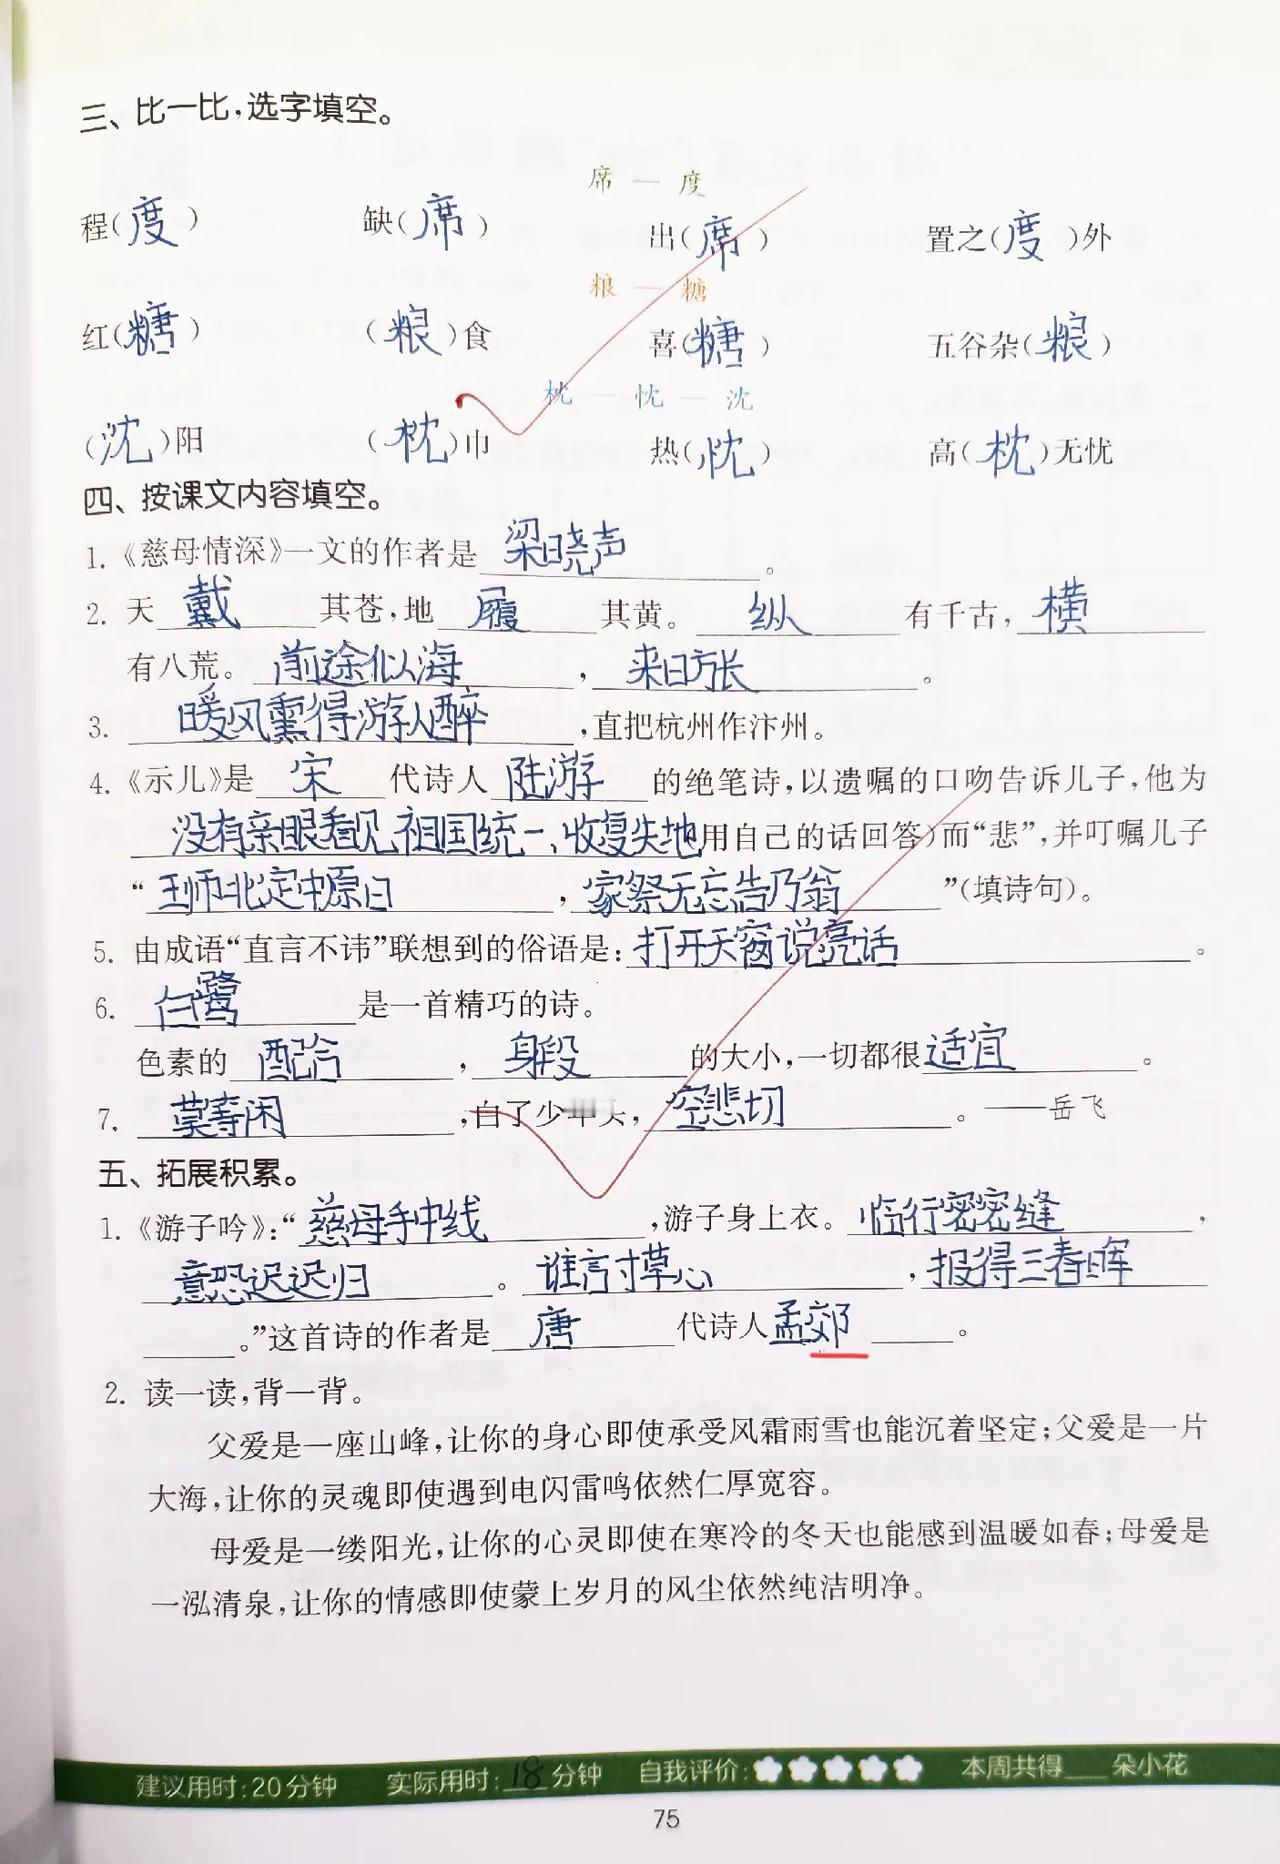 三、比一比，选字填空。
席 — 度
程(度) 缺(席) 出(席) 置之(度)外
粮 — 糖
红(糖) (粮)食 喜(糖) 五谷杂(粮)
枕 — 忱 — 沈
(沈)阳 (枕)巾 热(忱) 高(枕)无忧
四、按课文内容填空。
1.《慈母情深》一文的作者是 梁晓声 。
2. 天 戴 其苍，地 履 其黄。 纵 有千古， 横
有八荒。 前途似海 ， 来日方长 。
3. 暖风熏得游人醉 ，直把杭州作汴州。
4.《示儿》是 宋 代诗人 陆游 的绝笔诗，以遗嘱的口吻告诉儿子，他为
没有亲眼看见祖国统一、收复失地用自己的话回答)而“悲”，并叮嘱儿子
“ 王师北定中原日 ， 家祭无忘告乃翁 ”(填诗句)。
5. 由成语“直言不讳”联想到的俗语是： 打开天窗说亮话 。
6. 白鹭 是一首精巧的诗。
色素的 配合 ， 身段 的大小，一切都很 适宜 。
7. 莫等闲 ，白了少年头， 空悲切 。——岳飞
五、拓展积累。
1.《游子吟》：“ 慈母手中线 ，游子身上衣。 临行密密缝 ，
意恐迟迟归 。 谁言寸草心 ， 报得三春晖
。”这首诗的作者是 唐 代诗人 孟郊 。
2. 读一读，背一背。
父爱是一座山峰，让你的身心即使承受风霜雨雪也能沉着坚定；父爱是一片
大海，让你的灵魂即使遇到电闪雷鸣依然仁厚宽容。
母爱是一缕阳光，让你的心灵即使在寒冷的冬天也能感到温暖如春；母爱是
一泓清泉，让你的情感即使蒙上岁月的风尘依然纯洁明净。
建议用时：20分钟 实际用时：18分钟 自我评价： 本周共得 朵小花
75